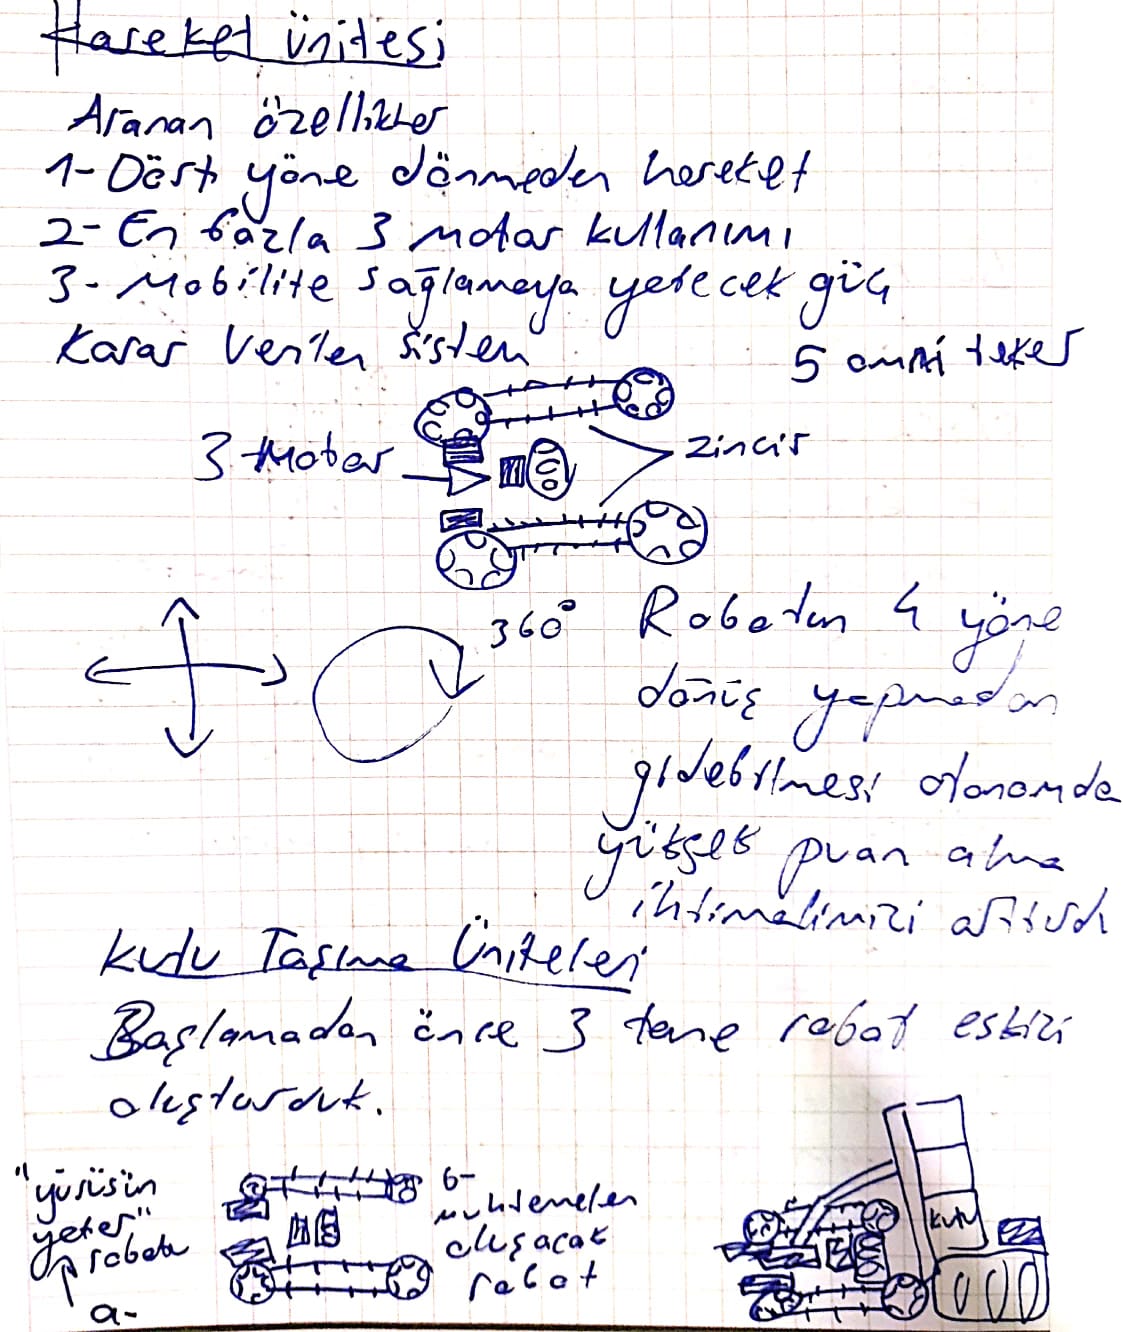 Hareket ünitesi
Aranan özellikler
1- Dört yöne dönmeden hareket
2- En fazla 3 motor kullanımı
3- Mobilite sağlamaya yetecek güç
Karar Verilen sistem
5 omni teker
3 Motor
zincir
360°
Robotun 4 yöne
dönüş yapmadan
gidebilmesi otonomda
yüksek puan alma
ihtimalimizi arttırdı
Kutu Taşıma Üniteleri
Başlamadan önce 3 tane robot eskizi
oluşturduk.
"yürüsün
yeter"
robotu
a-
b-
muhtemelen
oluşacak
robot
kutu